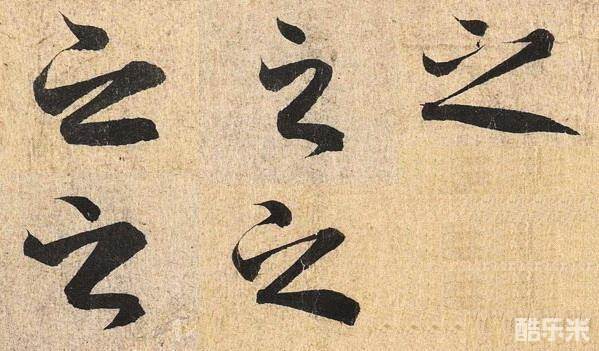 之之之
之之
酷乐米